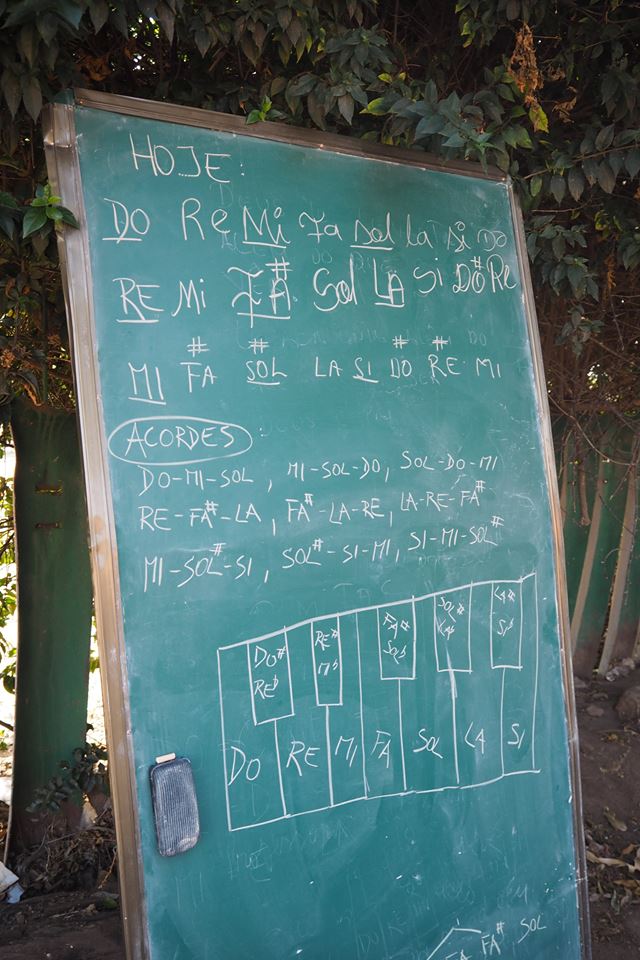 HOJE:
DO Re Mi Fa sol La si DO
RE Mi FA# Sol LA Si DO# Re
MI FA# SOL# LA SI DO# RE# MI
ACORDES:
DO-MI-SOL, MI-SOL-DO, SOL-DO-MI
RE-FA#-LA, FA#-LA-RE, LA-RE-FA#
MI-SOL#-SI, SOL#-SI-MI, SI-MI-SOL#
DO# RE# FA# SOL# LA#
REb Mb SOLb Sib
DO RE MI FA SOL LA SI
FA FA# SOL